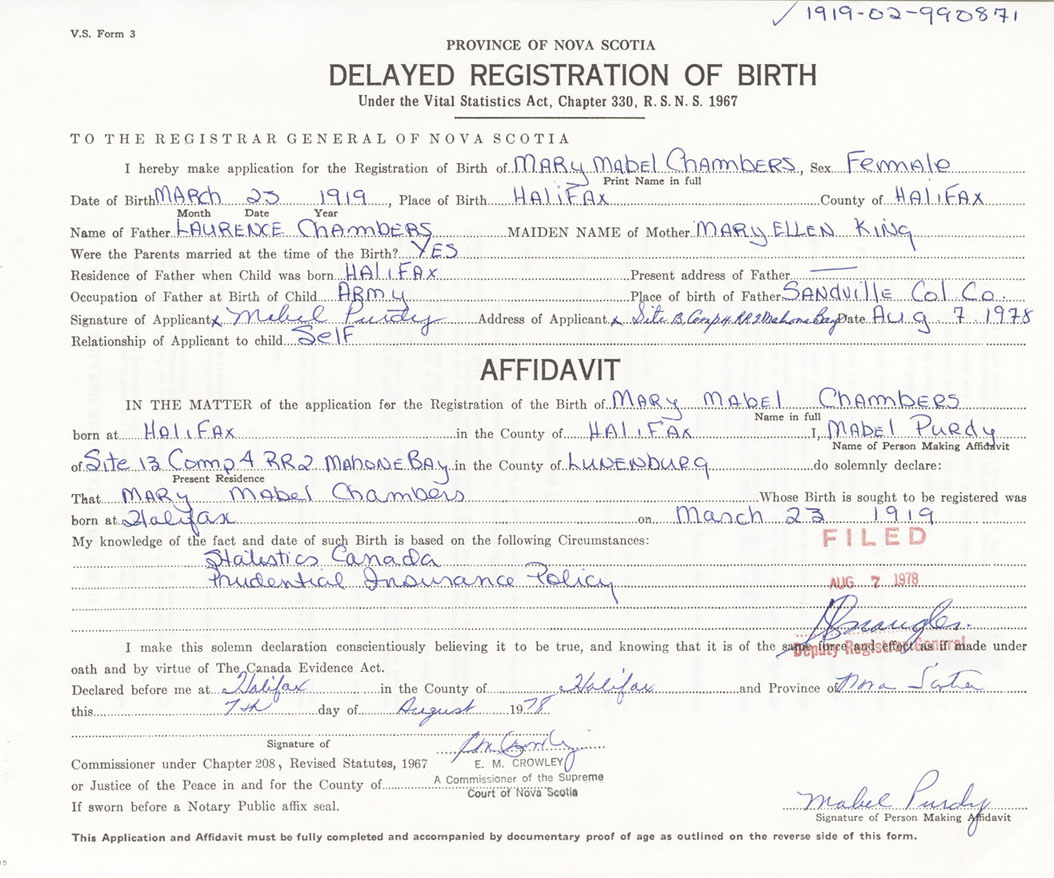 1919-02-990871
V.S. Form 3
PROVINCE OF NOVA SCOTIA
DELAYED REGISTRATION OF BIRTH
Under the Vital Statistics Act, Chapter 330, R.S.N.S. 1967
TO THE REGISTRAR GENERAL OF NOVA SCOTIA
I hereby make application for the Registration of Birth of MARY MABEL CHAMBERS, Sex FEMALE
Print Name in full
Date of Birth MARCH 23 1919, Place of Birth HALIFAX County of HALIFAX
Month Date Year
Name of Father LAURENCE CHAMBERS MAIDEN NAME of Mother MARY ELLEN KING
Were the Parents married at the time of the Birth? YES
Residence of Father when Child was born HALIFAX Present address of Father —
Occupation of Father at Birth of Child ARMY Place of birth of Father SANDVILLE Col Co.
Signature of Applicant x Mabel Purdy Address of Applicant x Site B, Comp 4 RR2 Mahone Bay Date Aug 7 1978
Relationship of Applicant to child SELF
AFFIDAVIT
IN THE MATTER of the application for the Registration of the Birth of MARY MABEL CHAMBERS
Name in full
born at HALIFAX in the County of HALIFAX I, MABEL PURDY
Name of Person Making Affidavit
of Site 13 Comp 4 RR2 MAHONE BAY in the County of LUNENBURG do solemnly declare:
Present Residence
That MARY MABEL Chambers Whose Birth is sought to be registered was
born at Halifax on March 23 1919
My knowledge of the fact and date of such Birth is based on the following Circumstances:
FILED
Statistics Canada
Prudential Insurance Policy
AUG 7 1978
I make this solemn declaration conscientiously believing it to be true, and knowing that it is of the same force and effect as if made under
Deputy Registrar General
oath and by virtue of The Canada Evidence Act.
Declared before me at Halifax in the County of Halifax and Province of Nova Scotia
this 7th day of August 1978
Signature of
Commissioner under Chapter 208, Revised Statutes, 1967 E. M. CROWLEY
or Justice of the Peace in and for the County of A Commissioner of the Supreme
Court of Nova Scotia
If sworn before a Notary Public affix seal.
Mabel Purdy
Signature of Person Making Affidavit
This Application and Affidavit must be fully completed and accompanied by documentary proof of age as outlined on the reverse side of this form.